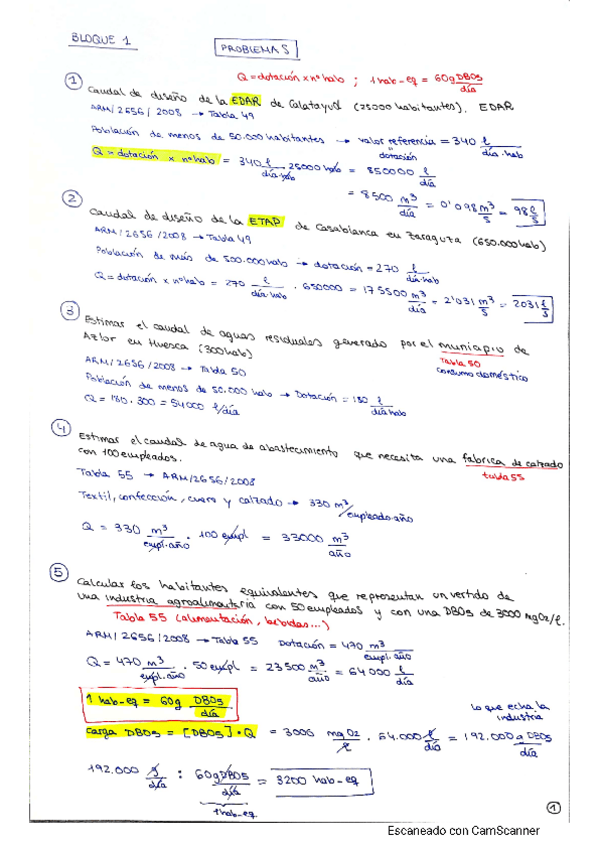 BLOQUE 1
PROBLEMAS
Q = dotación x nº hab ; 1 hab-eq = 60g DBO5/día
① Caudal de diseño de la EDAR de Calatayud (25000 habitantes). EDAR
ARM/2656/2008 → Tabla 49
Población de menos de 50.000 habitantes → valor referencia = 340 l/día·hab
dotación
Q = dotación x nº hab = 340 l/día·hab · 25000 hab = 850000 l/día
= 8500 m³/día = 0'098 m³/s = 98 l/s
② Caudal de diseño de la ETAP de Casablanca en Zaragoza (650.000 hab)
ARM/2656/2008 → Tabla 49
Población de más de 500.000 hab → dotación = 270 l/día·hab
Q = dotación x nº hab = 270 l/día·hab · 650000 = 175500 m³/día = 2'031 m³/s = 2031 l/s
③ Estimar el caudal de aguas residuales generado por el municipio de
Azlor en Huesca (300 hab)
Tabla 50
consumo doméstico
ARM/2656/2008 → Tabla 50
Población de menos de 50.000 hab → Dotación = 180 l/día·hab
Q = 180 · 300 = 54000 l/día
④ Estimar el caudal de agua de abastecimiento que necesita una fabrica de calzado
con 100 empleados.
tabla 55
Tabla 55 → ARM/2656/2008
Textil, confección, cuero y calzado → 330 m³/empleado·año
Q = 330 m³/empl·año · 100 empl = 33000 m³/año
⑤ Calcular los habitantes equivalentes que representan un vertido de
una industria agroalimentaria con 50 empleados y con una DBO5 de 3000 mg O2/l.
Tabla 55 (alimentación, bebidas...)
ARM/2656/2008 → Tabla 55 Dotación = 470 m³/empl·año
Q = 470 m³/empl·año · 50 empl = 23500 m³/año = 64000 l/día
1 hab-eq = 60g DBO5/día
lo que echa la
industria
carga DBO5 = [DBO5] · Q = 3000 mg O2/l · 64.000 l/día = 192.000 g DBO5/día
192.000 g/día : 60g DBO5/día = 3200 hab-eq
1 hab-eq
①
Escaneado con CamScanner